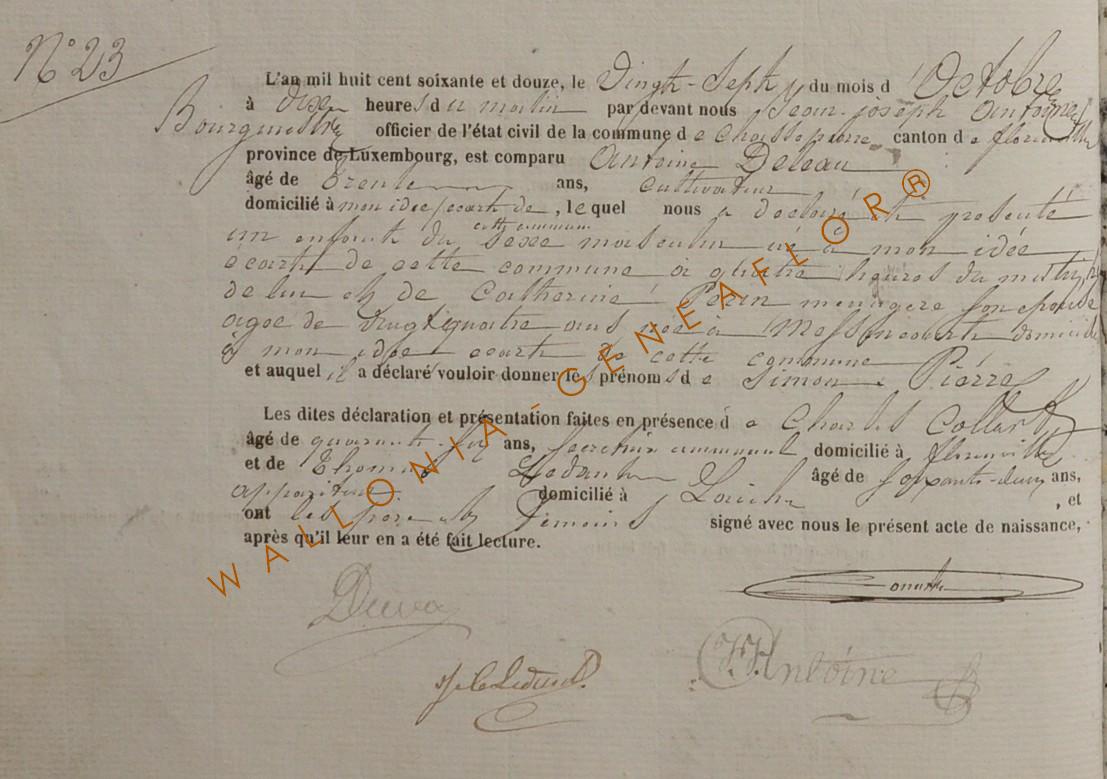 N° 23
L'an mil huit cent soixante et douze, le Vingt-Sept du mois d'Octobre
à dix heures du matin par devant nous Jean-joseph Antoine
Bourgmestre officier de l'état civil de la commune de Chassepierre canton de florenville
province de Luxembourg, est comparu Antoine
âgé de trente ans, cultivateur
domicilié à mon idée écart de cette commune, lequel nous a déclaré et présenté
un enfant du sexe masculin né à mon idée
écart de cette commune à quatre heures du matin
de lui et de Catherine ménagère son épouse
agée de vingt quatre ans née à Messincourt domiciliée
à mon idée écart de cette commune
et auquel il a déclaré vouloir donner les prénoms de Simon Pierre
Les dites déclaration et présentation faites en présence de Charles Collart
âgé de quarante ans, secrétaire communal domicilié à florenville
et de Thomas âgé de soixante-deux ans,
appariteur domicilié à Laiche, et
ont les père et témoins signé avec nous le présent acte de naissance,
après qu'il leur en a été fait lecture.
Antoine
WALLONIA-GENEAFLOR®